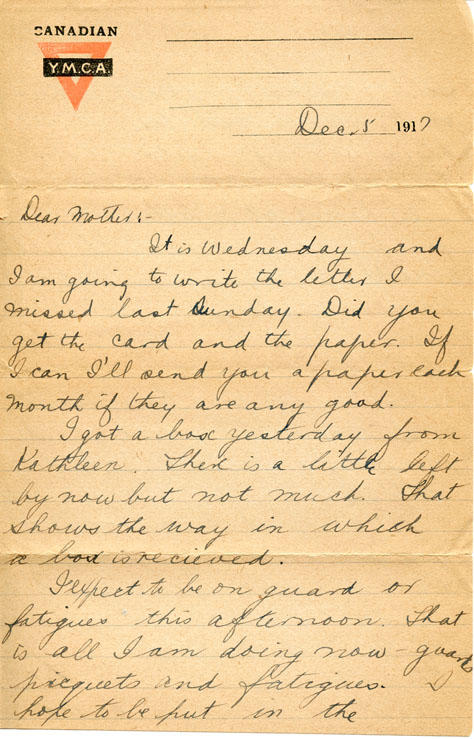 CANADIAN
Y.M.C.A.
Dec. 5 1917
Dear Mother:-
It is Wednesday and
I am going to write the letter I
missed last Sunday. Did you
get the card and the paper. If
I can I'll send you a paper each
month if they are any good.
I got a box yesterday from
Kathleen. There is a little left
by now but not much. That
shows the way in which
a box is recieved.
I expect to be on guard or
fatigues this afternoon. That
is all I am doing now - guards
picquets and fatigues. I
hope to be put in the